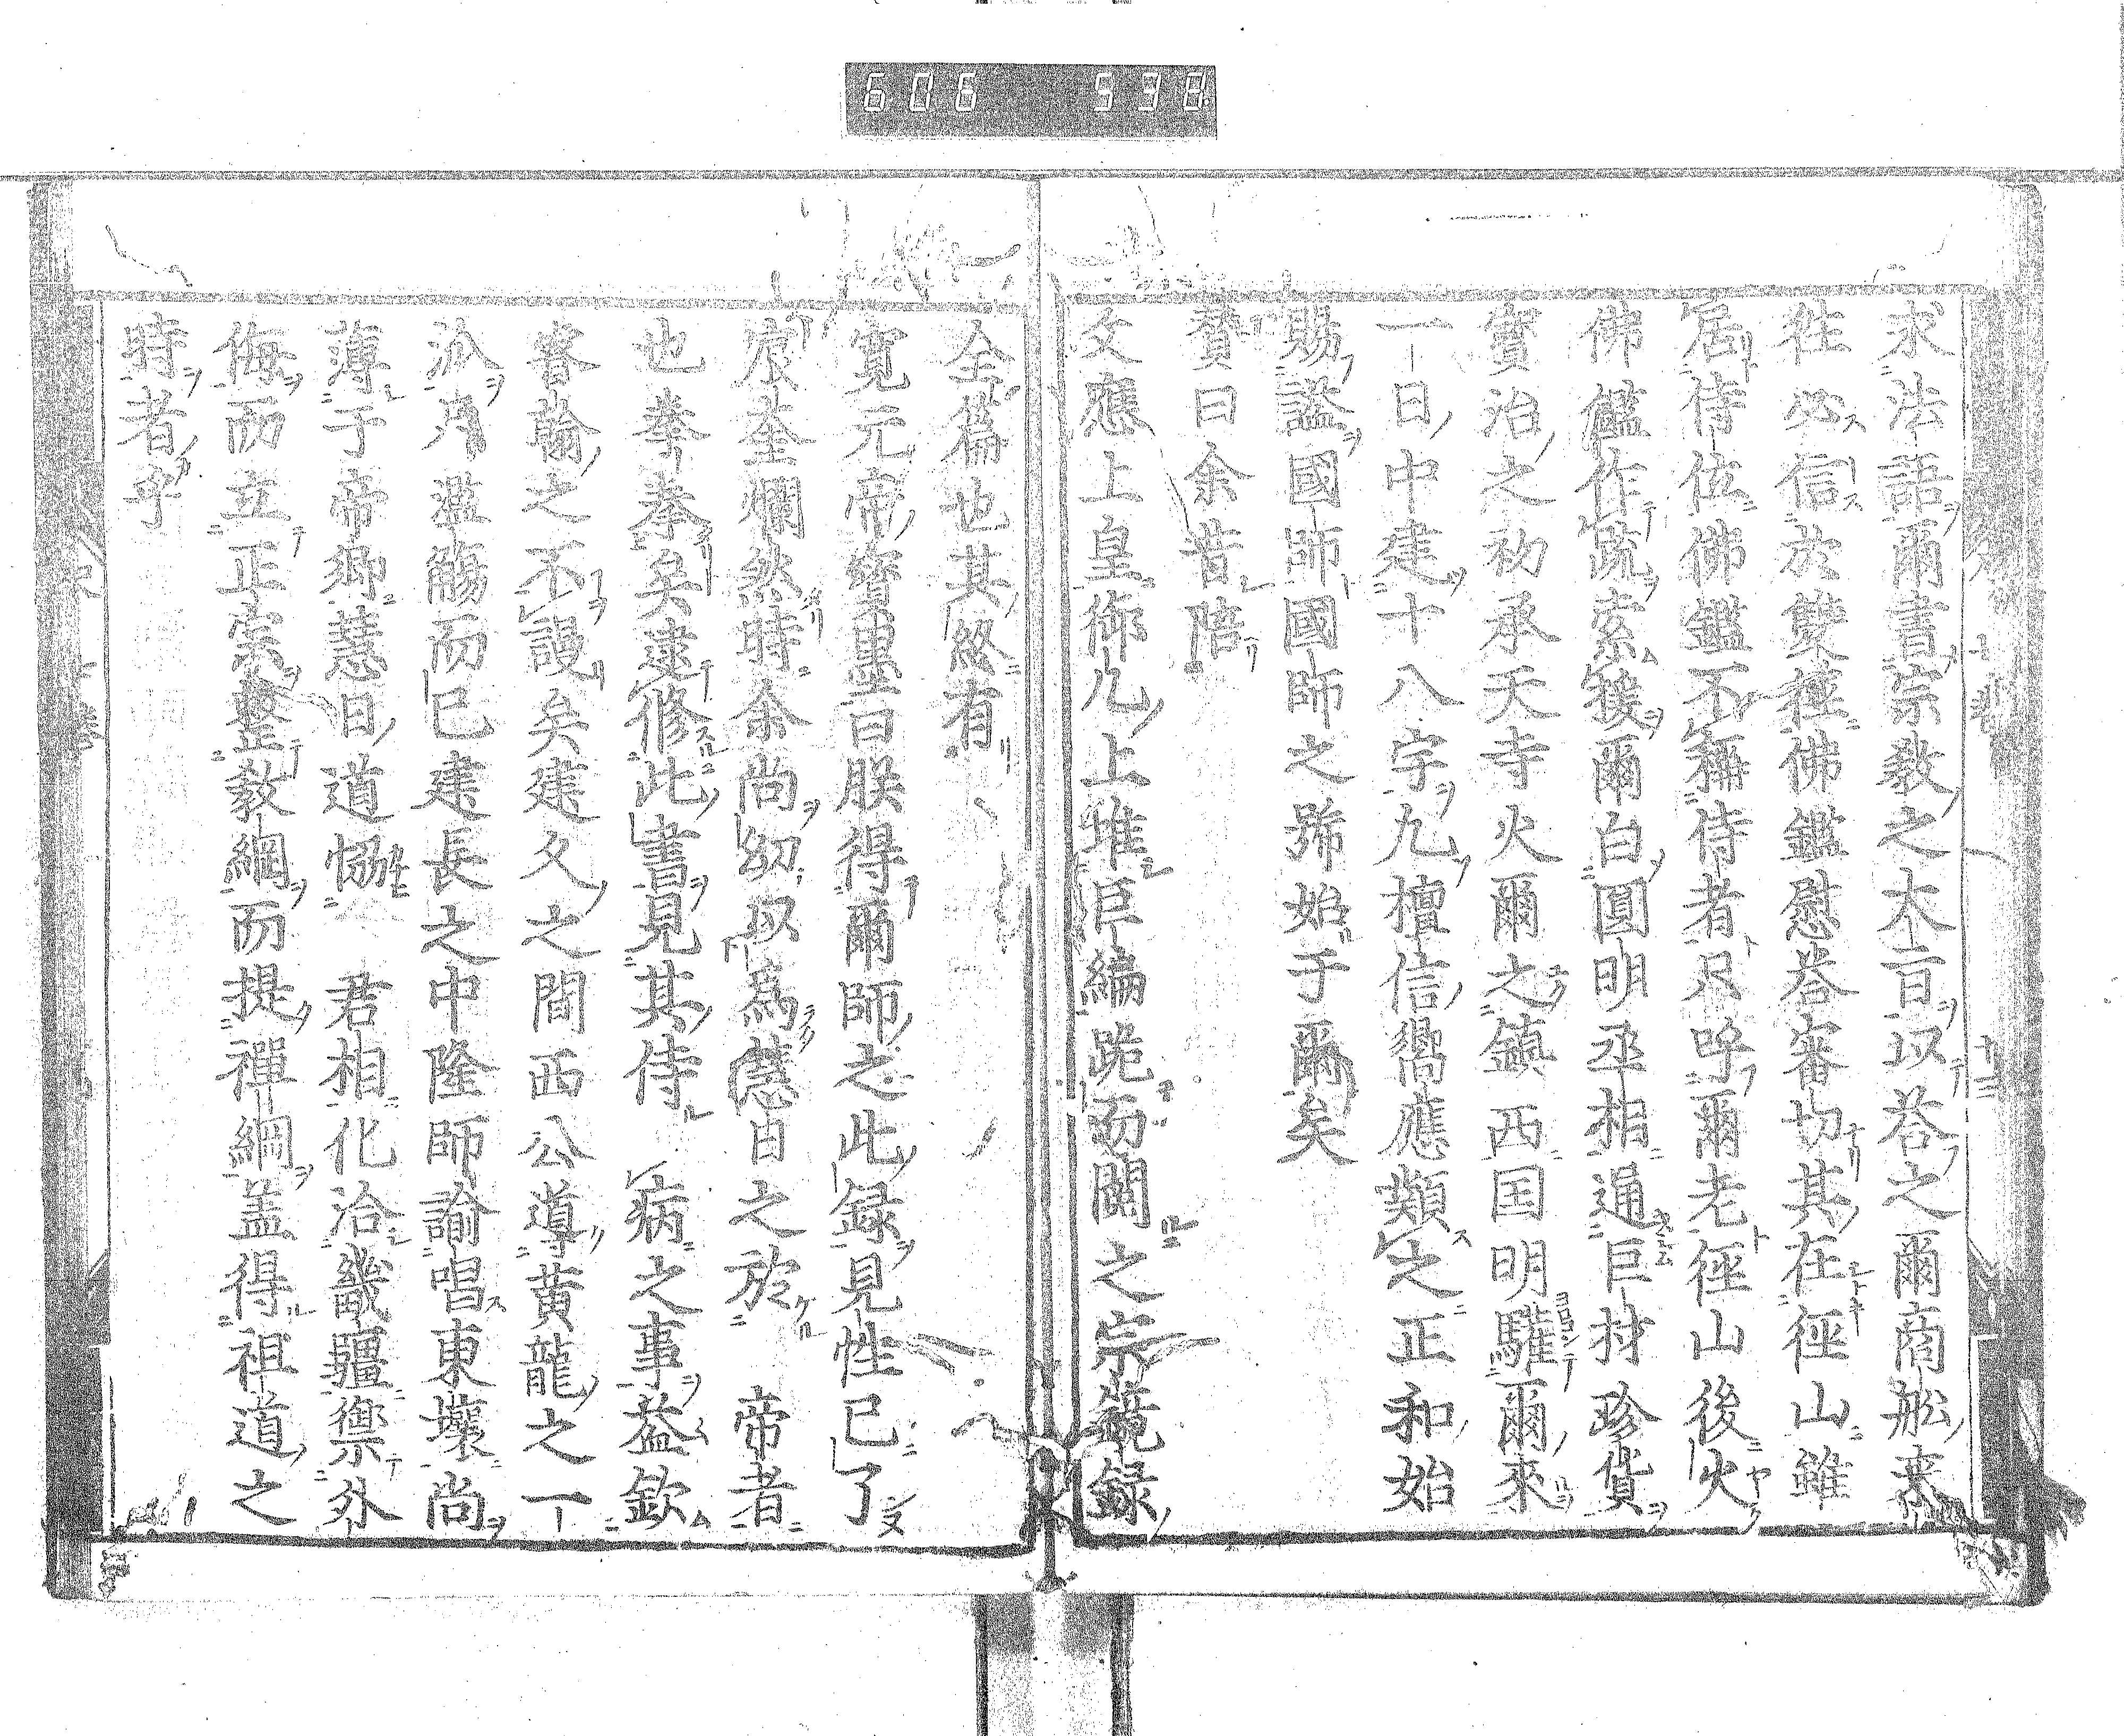 606 538
求法語爾書宗教之大旨以荅之爾商舩来
徃必信於雙徑佛鑑慰荅審切其在徑山雖
居侍位佛鑑不稱侍者只呼爾老徑山後火
佛鑑作疏索援爾白圓明丞相通巨材珍貨
寶治之初承天寺火爾之鎮西国明驩爾來
一日中建十八宇九檀信嚮應類之正和始
賜謚國師國師之號始于爾矣
賛曰余昔陪
文應上皇御几上堆巨編跪而闢之宗鏡録
全篇也其終有
寛元帝寶墨曰朕得爾師之此録見性已了
宸奎爛然時余尚幼以為慈日之於　帝者
也拳拳矣逮修此書見其侍　病之事益欽
睿翰之不謾矣建久之間西公導黃龍之一
派乃濫觴而已建長之中隆師諭唱東壤尚
薄于帝鄉慈日道愶　君相化洽畿疆禦外
侮而立正宗整教綱而提禪綱盖得祖道之
時者乎